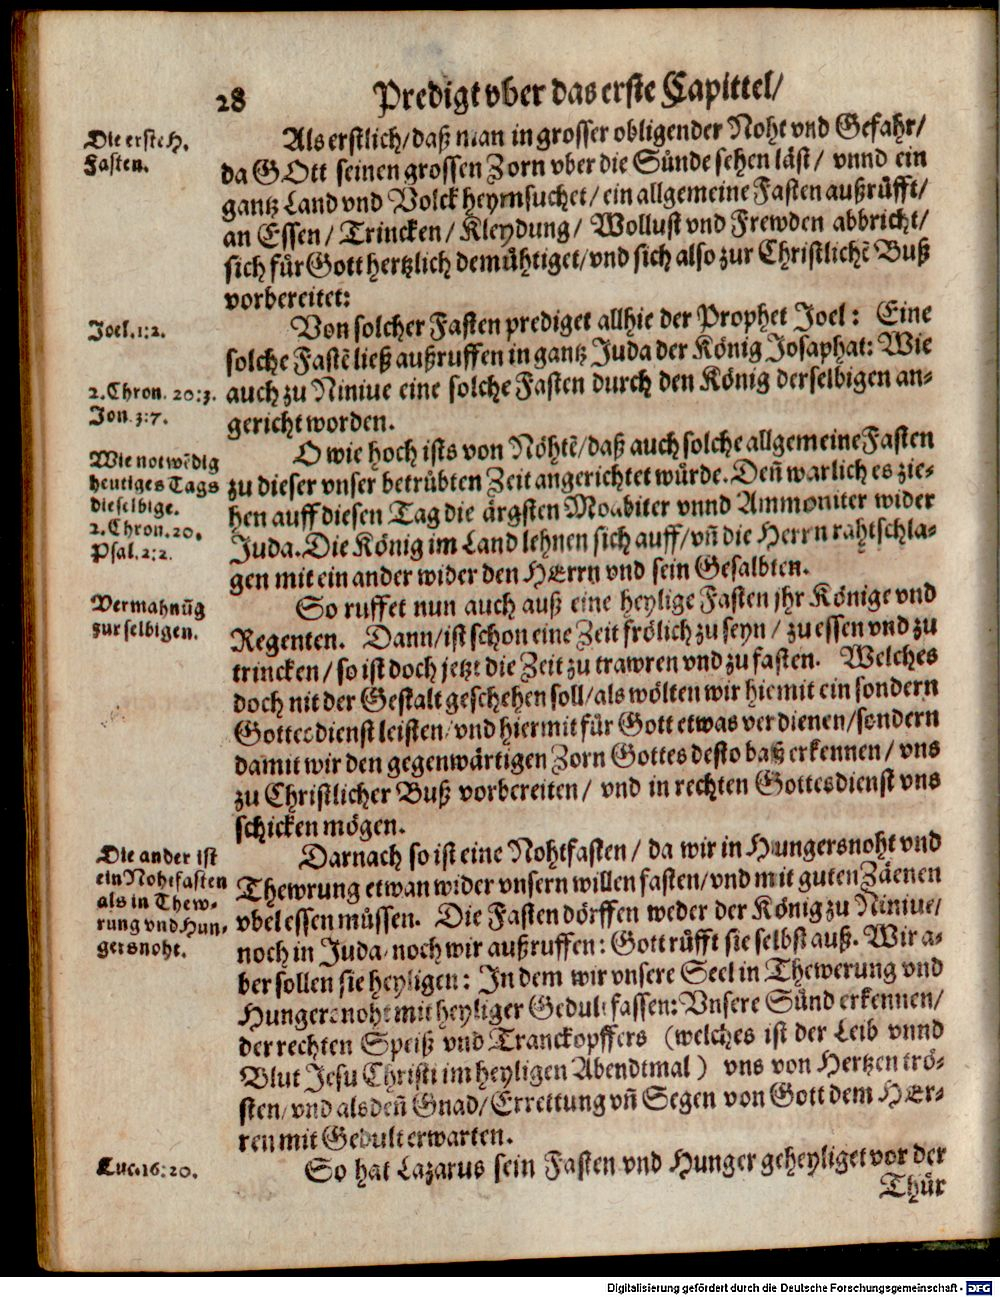 28 Predigt vber das erste Capittel/
Die erste H.
Fasten.
Als erstlich/ daß man in grosser obligender Noht vnd Gefahr/
da GOtt seinen grossen Zorn vber die Sünde sehen läst/ vnnd ein
gantz Land vnd Volck heymsuchet/ ein allgemeine Fasten außrüfft/
an Essen/ Trincken/ Kleydung/ Wollust vnd Frewden abbricht/
sich für Gott hertzlich demühtiget/ vnd sich also zur Christlichē Buß
vorbereitet:
Joel. 1:2.
Von solcher Fasten prediget allhie der Prophet Joel: Eine
solche Fastē ließ außruffen in gantz Juda der König Josaphat: Wie
2. Chron. 20:3.
auch zu Niniue eine solche Fasten durch den König derselbigen an-
Jon. 3:7.
gericht worden.
Wie notwēdig
heutiges Tags
dieselbige.
2. Chron. 20.
Psal. 2:2.
O wie hoch ists von Nöhtē/ daß auch solche allgemeine Fasten
zu dieser vnser betrübten Zeit angerichtet würde. Deñ warlich es zie-
hen auff diesen Tag die ärgsten Moabiter vnnd Ammoniter wider
Juda. Die König im Land lehnen sich auff/ vñ die Herrn rahtschla-
gen mit ein ander wider den HErrn vnd sein Gesalbten.
Vermahnūg
zur selbigen.
So ruffet nun auch auß eine heylige Fasten jhr Könige vnd
Regenten. Dann/ ist schon eine Zeit frölich zu seyn/ zu essen vnd zu
trincken/ so ist doch jetzt die Zeit zu trawren vnd zu fasten. Welches
doch nit der Gestalt geschehen soll/ als wölten wir hiemit ein sondern
Gottesdienst leisten/ vnd hiermit für Gott etwas verdienen/ sondern
damit wir den gegenwärtigen Zorn Gottes desto baß erkennen/ vns
zu Christlicher Buß vorbereiten/ vnd in rechten Gottesdienst vns
schicken mögen.
Die ander ist
ein Nohtfasten
als in Thew-
rung vnd Hun-
gersnoht.
Darnach so ist eine Nohtfasten/ da wir in Hungersnoht vnd
Thewrung etwan wider vnsern willen fasten/ vnd mit guten Zäenen
vbel essen müssen. Die Fasten dörffen weder der König zu Niniue/
noch in Juda/ noch wir außruffen: Gott rüfft sie selbst auß. Wir a-
ber sollen sie heyligen: In dem wir vnsere Seel in Thewerung vnd
Hungersnoht mit heyliger Gedult fassen: Vnsere Sünd erkennen/
der rechten Speiß vnd Tranckopffers (welches ist der Leib vnnd
Blut Jesu Christi im heyligen Abendtmal) vns von Hertzen trö-
sten/ vnd als deñ Gnad/ Errettung vñ Segen von Gott dem HEr-
ren mit Gedult erwarten.
Luc. 16:20.
So hat Lazarus sein Fasten vnd Hunger geheyliget vor der
Thür
Digitalisierung gefördert durch die Deutsche Forschungsgemeinschaft - DFG